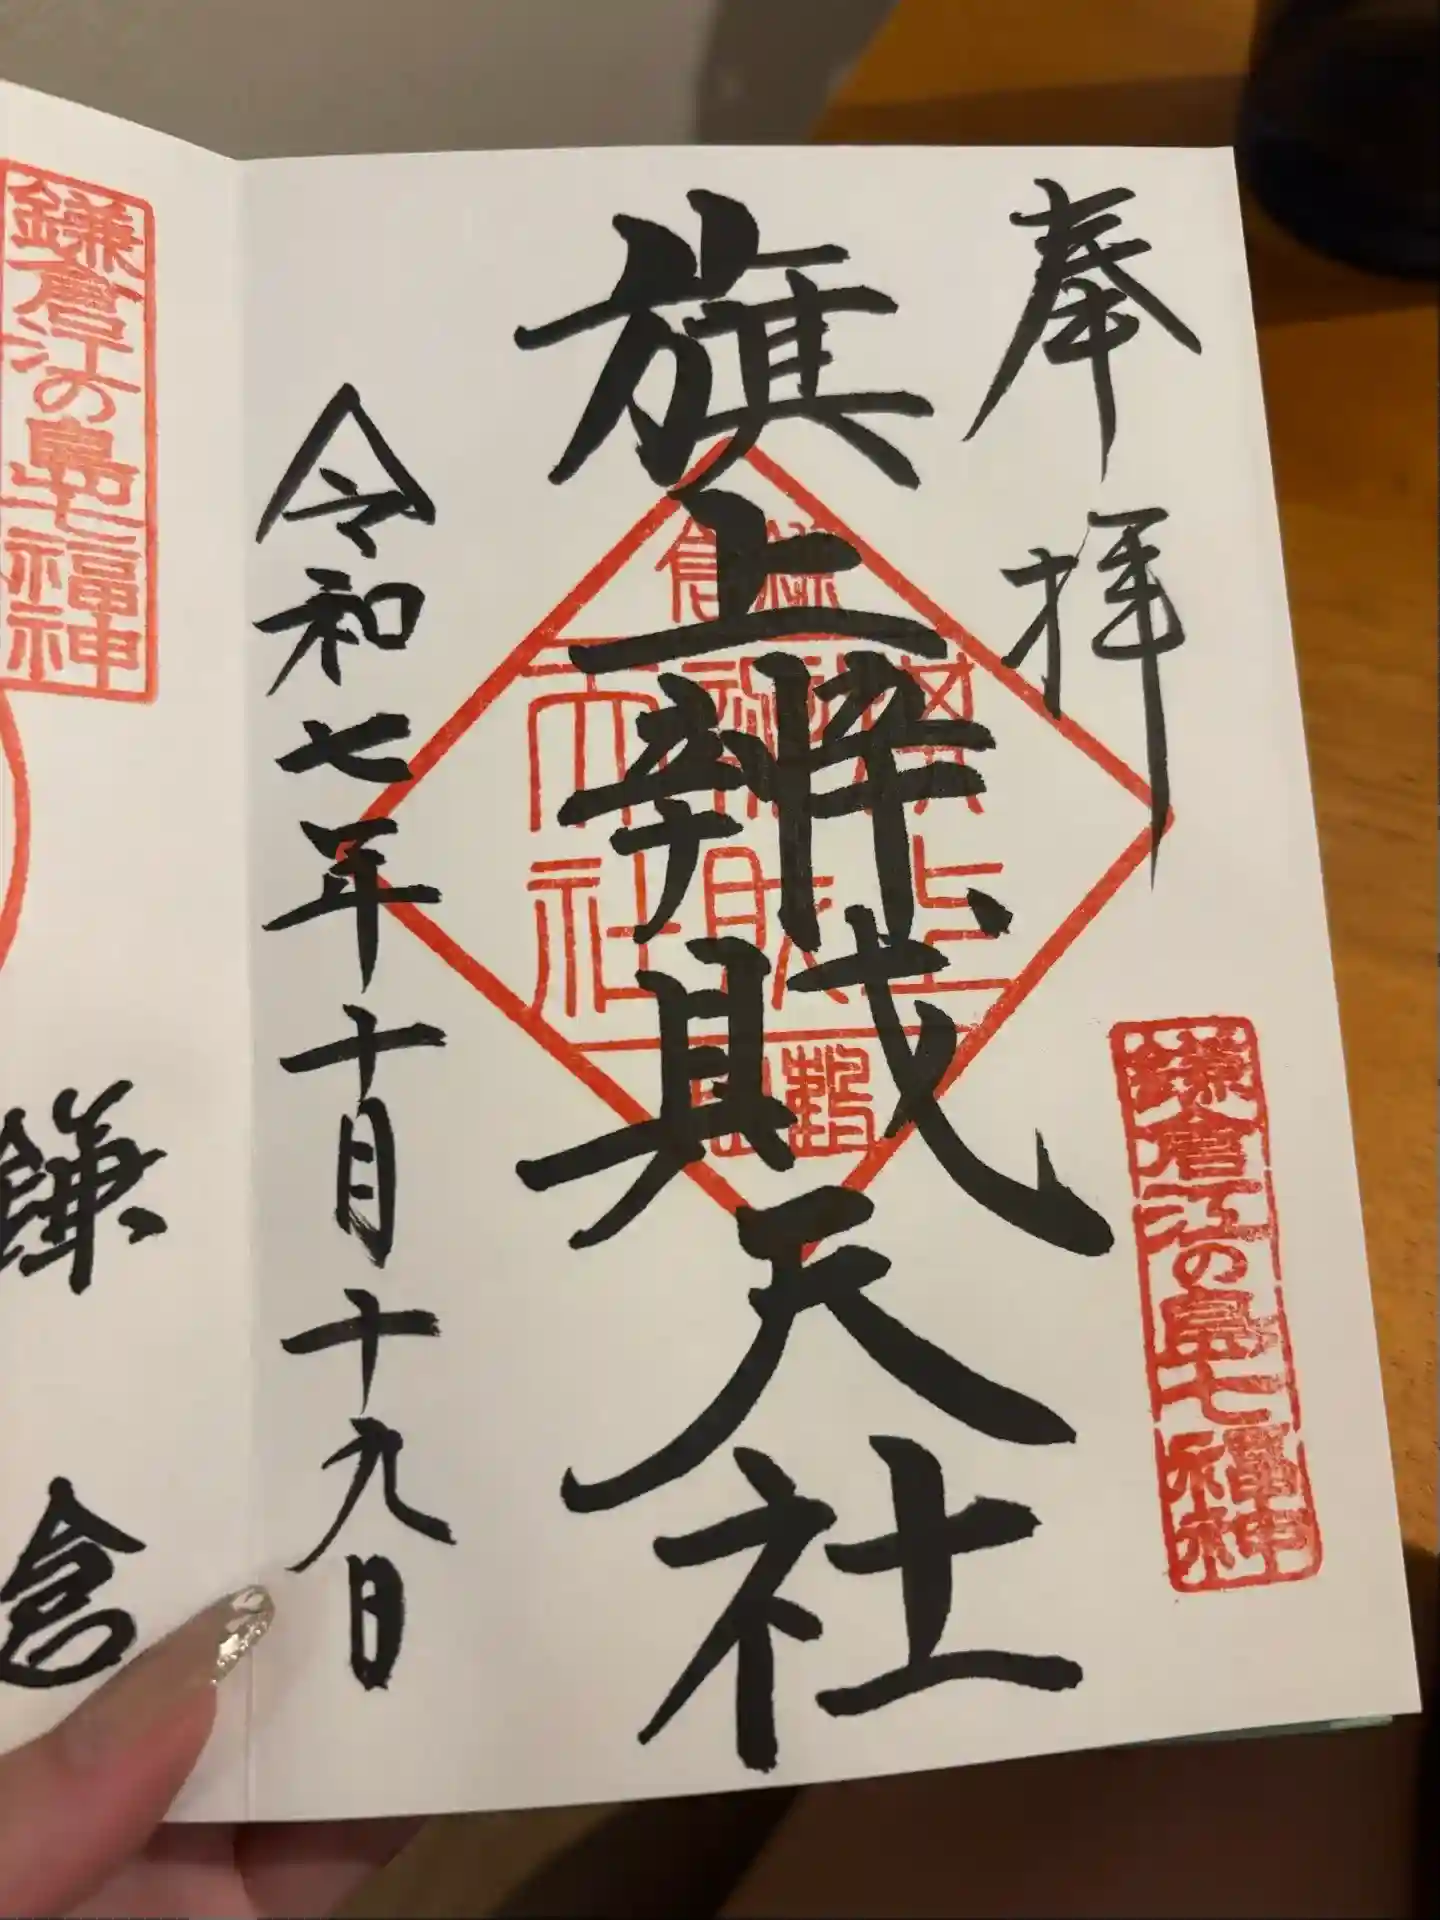 奉拝
鎌倉江の島七福神
旗上辨財天社
鎌倉
旗上
辨財
天社
令和七年十月十九日
鎌倉江の島七福神
鎌倉